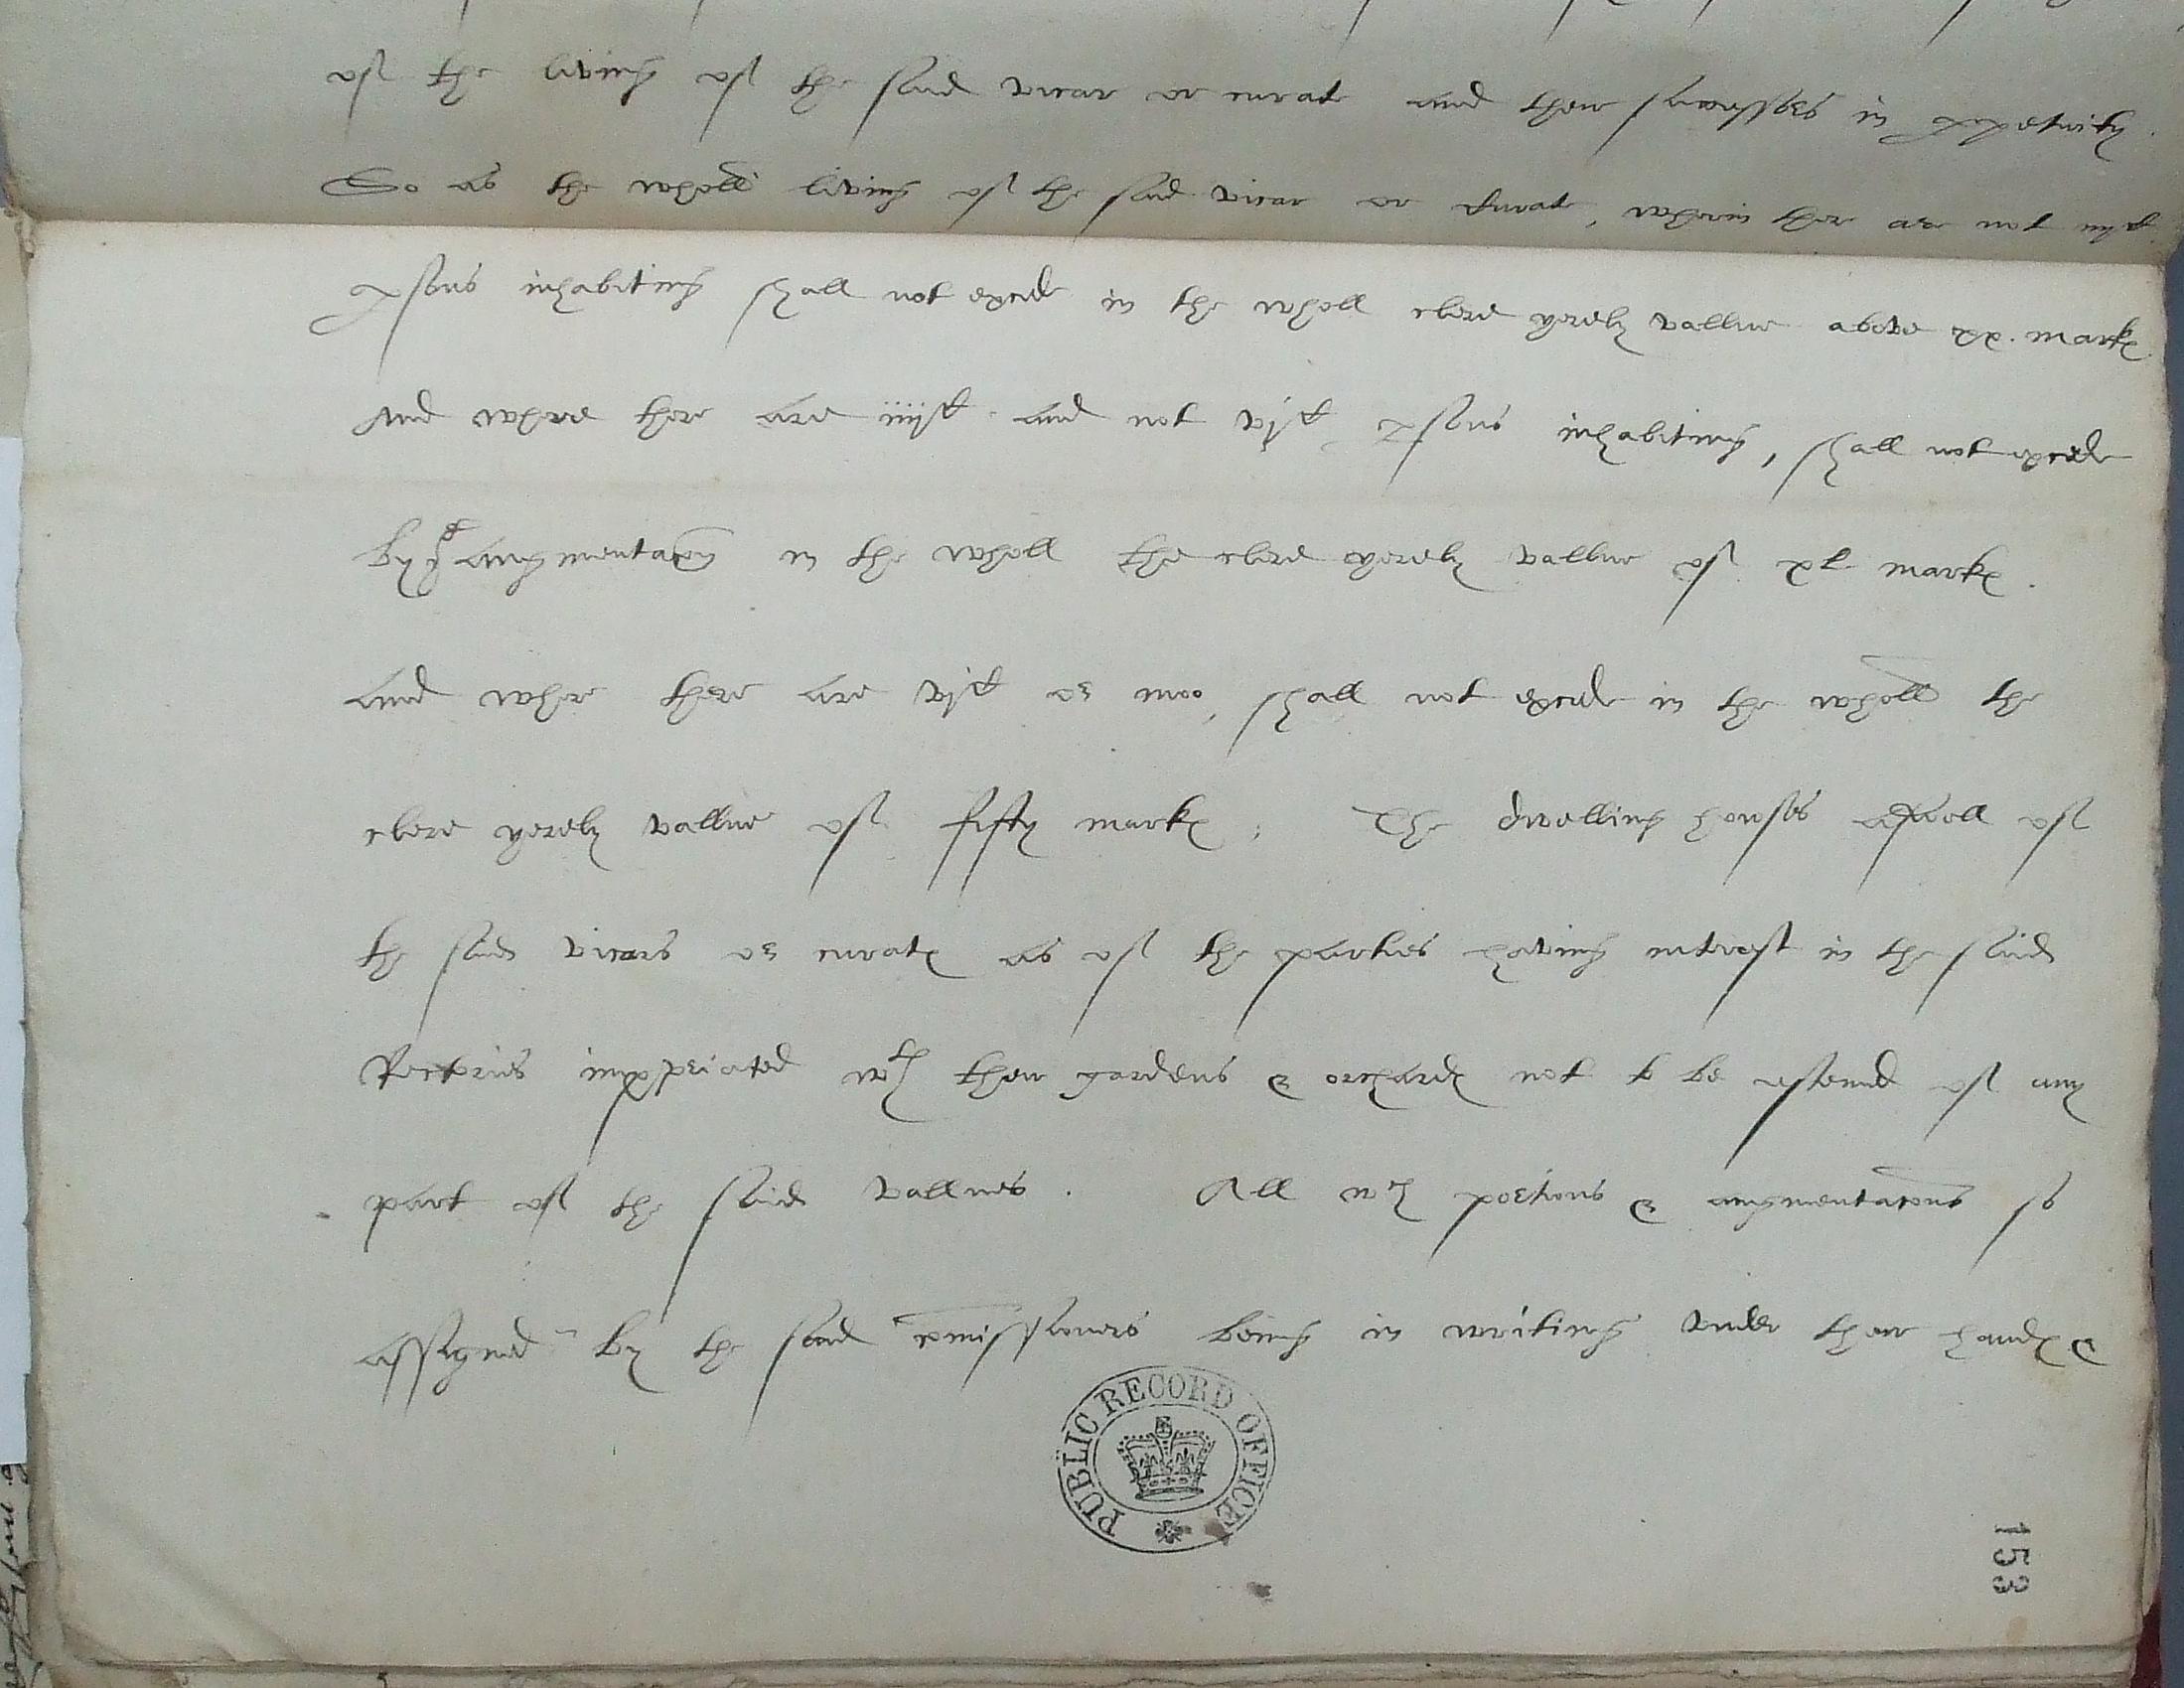 of the living of the said vicar or curate and their successors in perpetuity.
So as the wholl living of the said vicar or curate, wherin ther are not iiijC
psons inhabiting shall not excede in the wholl clere yerely vallue above xx. markes
And where there are iiijC and not vjC psons inhabiting, shall not excede
by augmentacon in the wholl the clere yerely vallue of xl markes.
and where there are vjC or moo, shall not excede in the wholl the
clere yerely vallue of fifty markes; The dwelling howses aswell of
the said vicars or curates as of the parties having interest in the said
Rectories impropriated wth their gardens & orchardes not to be estemed of any
part of the said vallues. All wch portions & augmentacons so
assigned by the said comissioners being in writing under their handes &
PUBLIC RECORD OFFICE
153